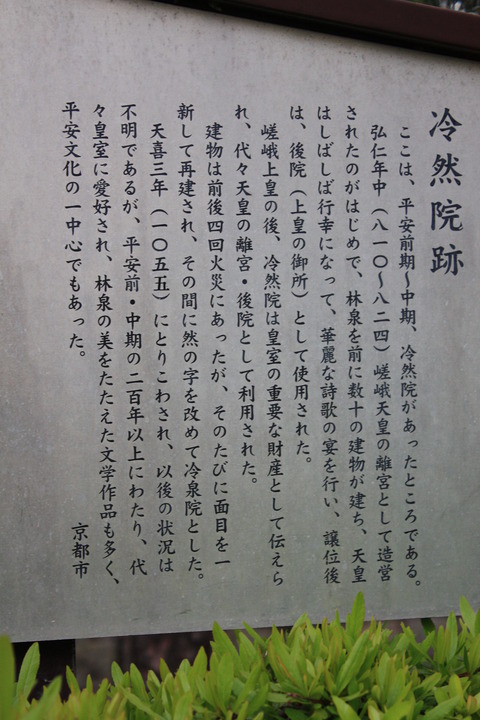 冷然院跡
ここは、平安前期〜中期、冷然院があったところである。
弘仁年中（八一〇〜八二四）嵯峨天皇の離宮として造営
されたのがはじめで、林泉を前に数十の建物が建ち、天皇
はしばしば行幸になって、華麗な詩歌の宴を行い、譲位後
は、後院（上皇の御所）として使用された。
嵯峨上皇の後、冷然院は皇室の重要な財産として伝えら
れ、代々天皇の離宮・後院として利用された。
建物は前後四回火災にあったが、そのたびに面目を一
新して再建され、その間に然の字を改めて冷泉院とした。
天喜三年（一〇五五）にとりこわされ、以後の状況は
不明であるが、平安前・中期の二百年以上にわたり、代
々皇室に愛好され、林泉の美をたたえた文学作品も多く、
平安文化の一中心でもあった。
京都市